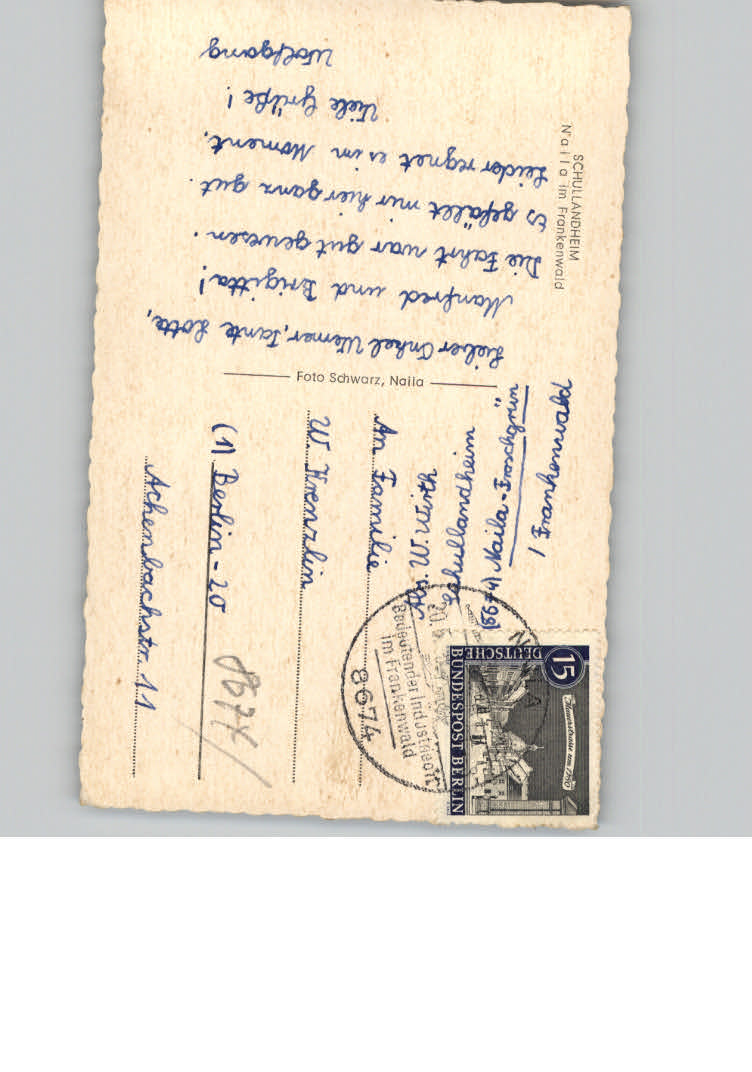 SCHULLANDHEIM
Naila im Frankenwald
Lieber Onkel Werner, Tante Lotte,
Manfred und Brigitta!
Die Fahrt war gut gewesen.
Es gefällt mir hier ganz gut.
Leider regnet es im Moment.
Viele Grüße!
Wolfgang
Foto Schwarz, Naila
Schullandheim
Naila-Froschgrün"
/ Frankenwald
An Familie
W. Krenzlin
(1) Berlin-20
Achenbachstr. 11
8674
Bedeutender Industrieort
im Frankenwald
8674
15
DEUTSCHE
BUNDESPOST BERLIN
Mauerstrasse um 1780